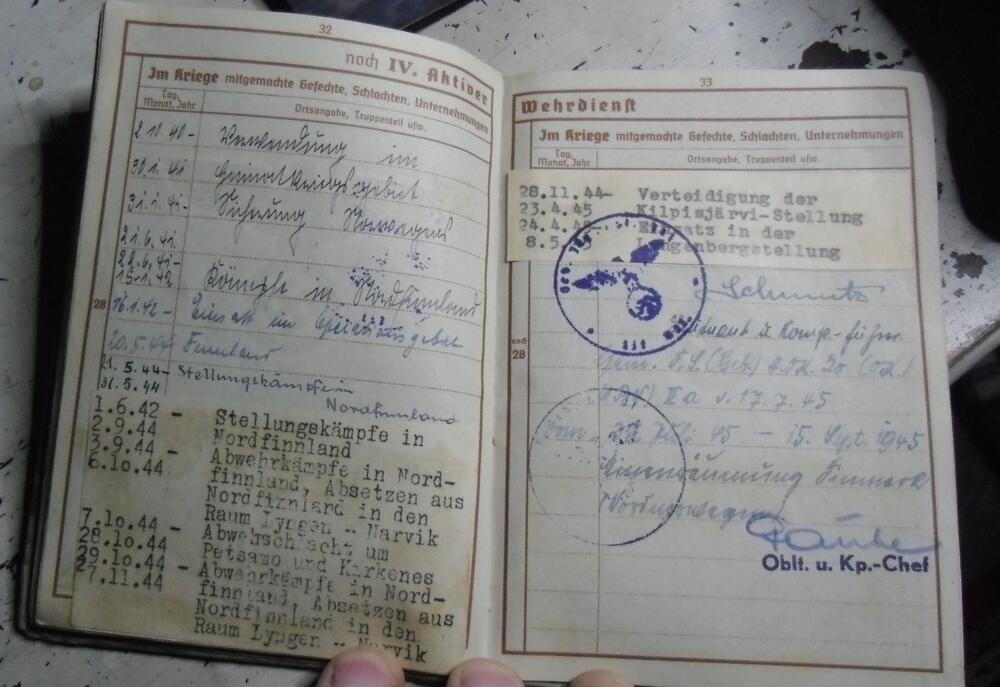 32
noch IV. Aktiver
Im Kriege mitgemachte Gefechte, Schlachten, Unternehmungen
Tag, Monat, Jahr
Ortsangabe, Truppenteil usw.
2.10.40 - Verwendung im
30.1.41 Heimatkriegsgebiet
31.1.41 - Sicherung Norwegens
21.6.41
22.6.41 -
15.1.42 Kämpfe in Nordfinnland
28
16.1.42 - Einsatz im Operationsgebiet
20.5.44 Finnland
21.5.44 - Stellungskämpfe in
31.5.44 Nordfinnland
1.6.42 - Stellungskämpfe in
2.9.44 Nordfinnland
3.9.44 - Abwehrkämpfe in Nord-
6.10.44 finnland, Absetzen aus
Nordfinnland in den
Raum Lyngen - Narvik
7.10.44 - Abwehschlacht um
28.10.44 Petsamo und Kirkenes
29.10.44 - Abwehrkämpfe in Nord-
27.11.44 finnland, Absetzen aus
Nordfinnland in den
Raum Lyngen - Narvik
33
Wehrdienst
Im Kriege mitgemachte Gefechte, Schlachten, Unternehmungen
Tag, Monat, Jahr
Ortsangabe, Truppenteil usw.
28.11.44- Verteidigung der
23.4.45 Kilpisjärvi-Stellung
24.4.45 Einsatz in der
8.5. Lyngenbergstellung
Schmutz
u. Komp.-führer
noch
28
IIa v. 17.7.45
45 - 15. Sept. 1945
Minenräumung Finmark
Oblt. u. Kp.-Chef